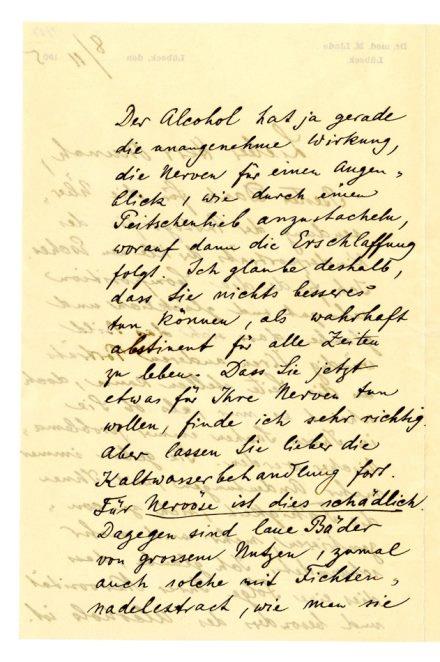 Der Alcohol hat ja gerade
die unangenehme Wirkung,
die Nerven für einen Augen-
blick, wie durch einen
Peitschenhieb anzustacheln,
worauf dann die Erschlaffung
folgt. Ich glaube deshalb,
dass Sie nichts besseres
tun können, als wahrhaft
abstinent für alle Zeiten
zu leben. Dass Sie jetzt
etwas für Ihre Nerven tun
wollen, finde ich sehr richtig.
Aber lassen Sie lieber die
Kaltwasserbehandlung fort.
Für Nervöse ist dies schädlich.
Dagegen sind laue Bäder
von grossem Nutzen, zumal
auch solche mit Fichten-
nadelextract, wie man sie